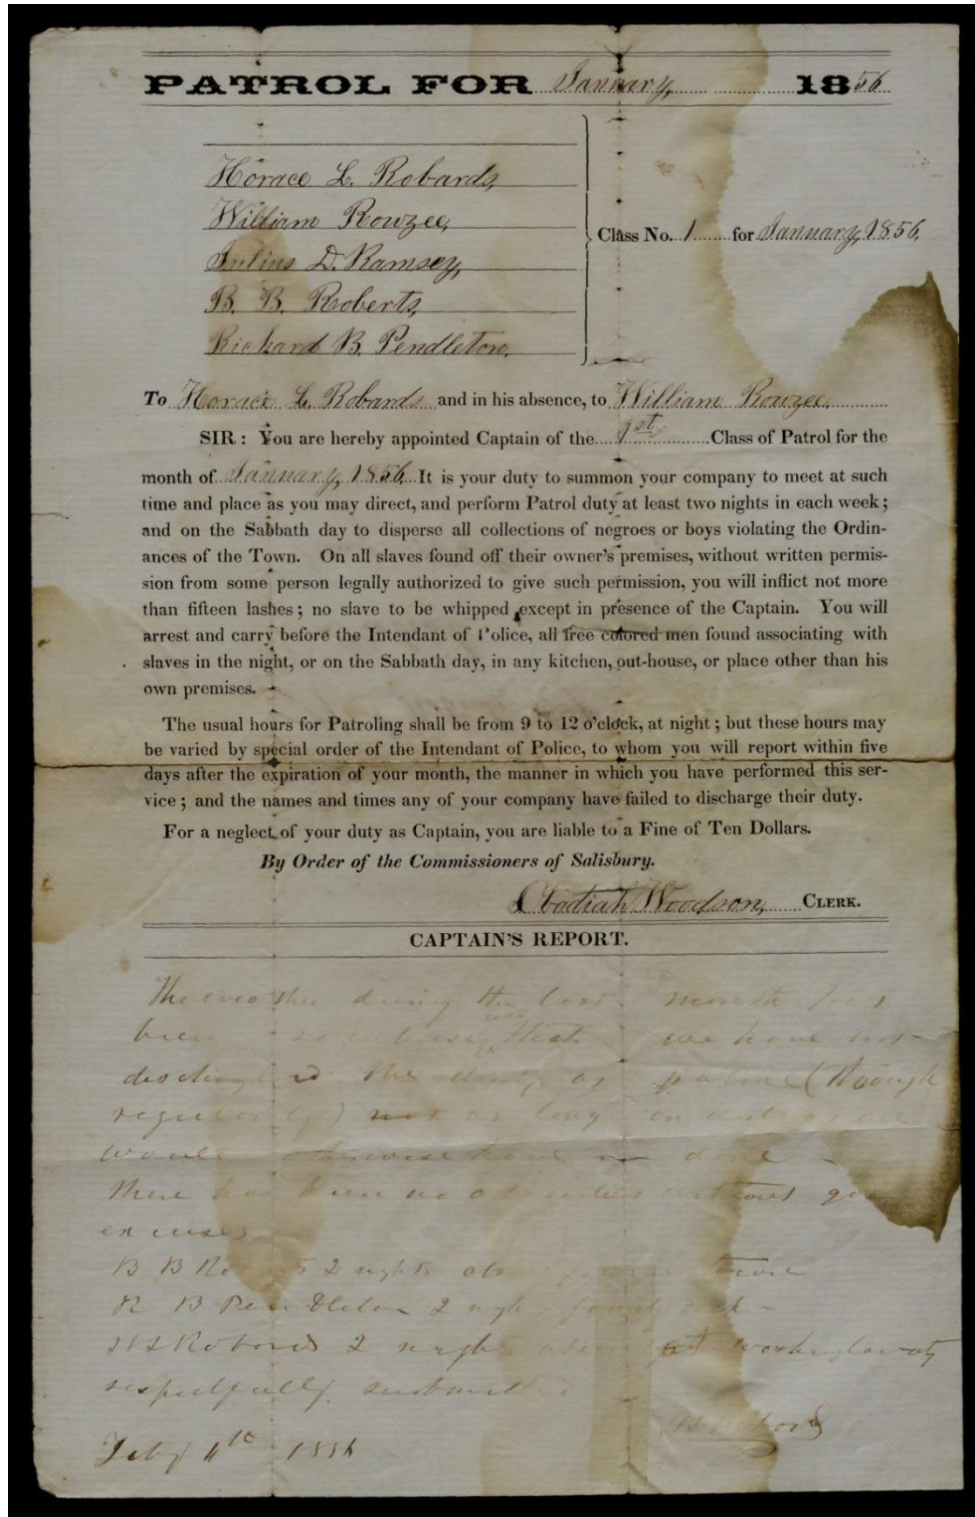 PATROL FOR January, 1856
Horace L. Robards,
William Rowzee,
Julius D. Ramsey,
B. B. Roberts,
Richard B. Pendleton.
Class No. 1 for January, 1856.
To Horace L. Robards and in his absence, to William Rowzee.
SIR : You are hereby appointed Captain of the 1st Class of Patrol for the
month of January, 1856. It is your duty to summon your company to meet at such
time and place as you may direct, and perform Patrol duty at least two nights in each week ;
and on the Sabbath day to disperse all collections of negroes or boys violating the Ordin-
ances of the Town. On all slaves found off their owner's premises, without written permis-
sion from some person legally authorized to give such permission, you will inflict not more
than fifteen lashes ; no slave to be whipped except in presence of the Captain. You will
arrest and carry before the Intendant of Police, all free colored men found associating with
slaves in the night, or on the Sabbath day, in any kitchen, out-house, or place other than his
own premises.
The usual hours for Patroling shall be from 9 to 12 o'clock, at night ; but these hours may
be varied by special order of the Intendant of Police, to whom you will report within five
days after the expiration of your month, the manner in which you have performed this ser-
vice ; and the names and times any of your company have failed to discharge their duty.
For a neglect of your duty as Captain, you are liable to a Fine of Ten Dollars.
By Order of the Commissioners of Salisbury.
Obadiah Woodson, CLERK.
CAPTAIN'S REPORT.
The weather during the last month has
been so intensely cold that we have not
discharged the duty as (though
regularly) not as long on
would otherwise have done
There has been no without good
excuses
B B Roberts 2 nights
R B Pendleton 2 nights
H L Robards 2 nights at Washington city
respectfully submitted
Feby 4th 1856